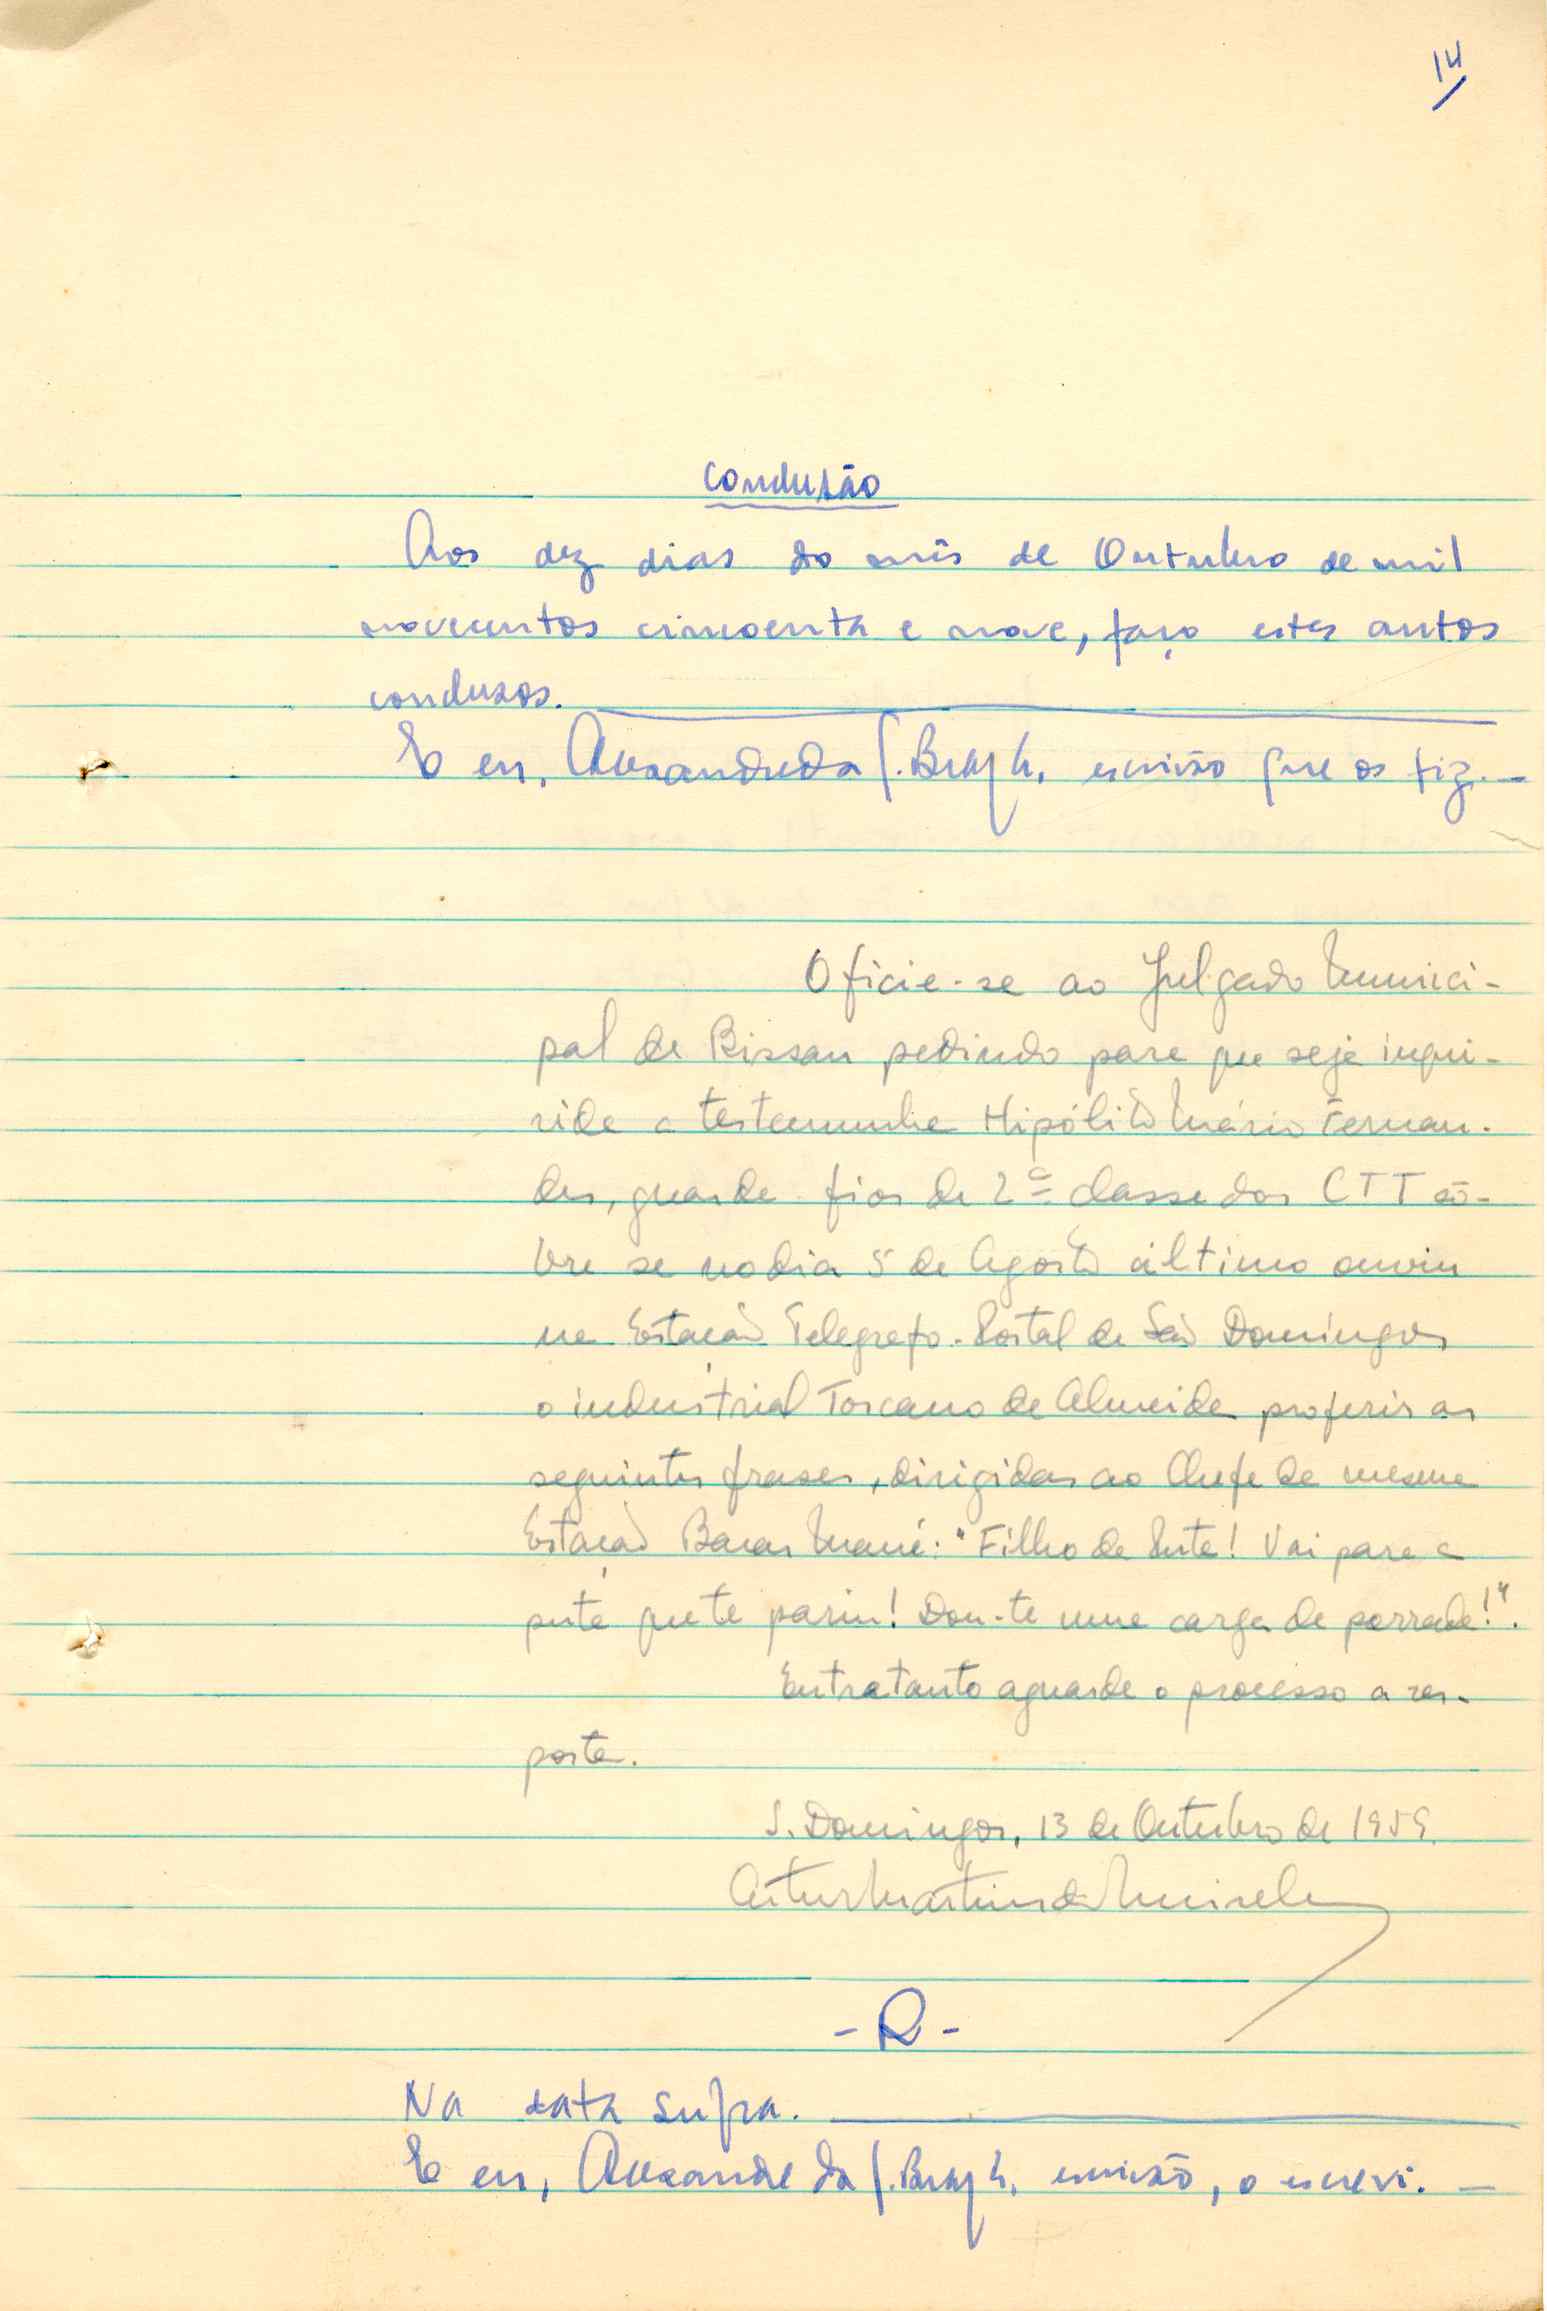 14
Conclusão
Aos dez dias do mês de Outubro de mil
novecentos cincoenta e nove, faço estes autos
conclusos.
E eu, Alexandre da S. Braga, escrivão que os fiz.
Oficie-se ao Julgado Munici-
pal de Bissau pedindo para que seja inqui-
rida a testemunha Hipólito Mário Fernan-
des, guarda-fios de 2ª classe dos CTT sô-
bre se no dia 5 de Agosto último ouviu
na Estação Telegrafo-Postal de São Domingos
o industrial Toscano de Almeida proferir as
seguintes frases, dirigidas ao Chefe da mesma
Estação Bacar Mané: "Filho da Puta! Vai para a
puta que te pariu! Dou-te uma carga de porrada!".
Entratanto aguarde o processo a res-
posta.
S. Domingos, 13 de Outubro de 1959.
Artur Martins de Meireles
- R -
Na data supra.
E eu, Alexandre da S. Braga, escrivão, o escrevi.